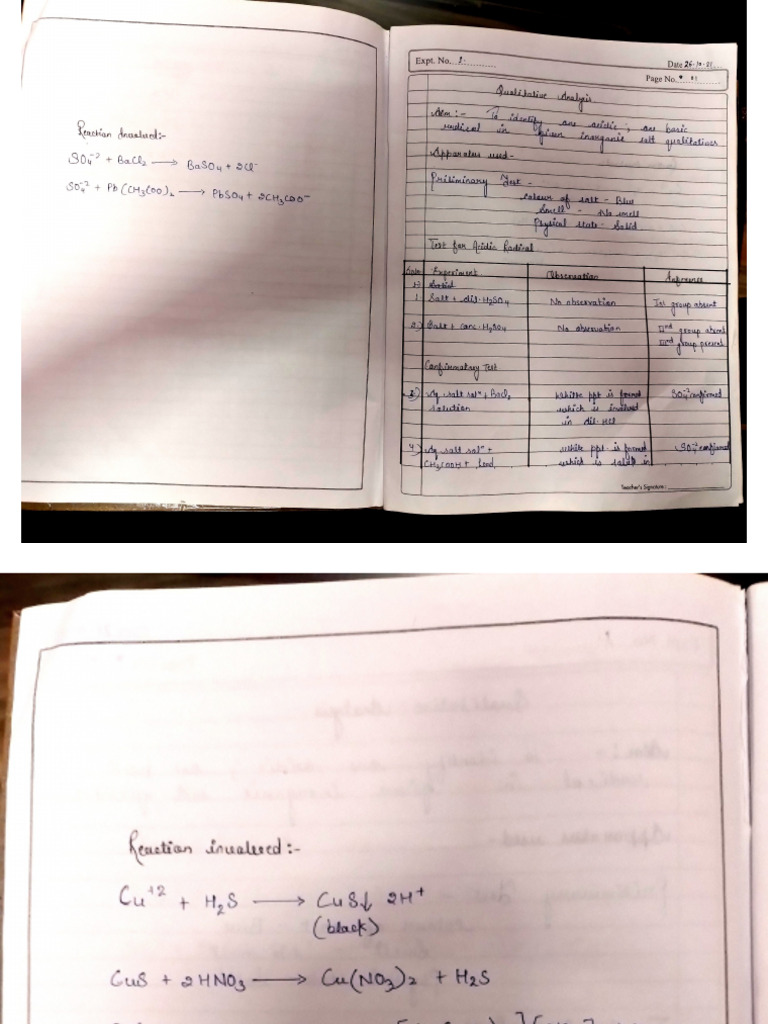 Reaction Involved:-
SO₄⁻² + BaCl₂ ⟶ BaSO₄ + 2Cl⁻
SO₄⁻² + Pb(CH₃COO)₂ ⟶ PbSO₄ + 2CH₃COO⁻
Expt. No. 1.
Date 26.10.21
Page No. 01
Qualitative Analysis
Aim:- To identify one acidic ; one basic
radical in given inorganic salt qualitatives
Apparatus used-
Priliminary Test -
colour of salt - Blue
Smell - No smell
Physical state- Solid
Test for Acidic Radical
Experiment Observation Inference
1. Salt + dil. H₂SO₄ No observation Ist group absent
2.) Salt + conc. H₂SO₄ No observation IInd group absent
IIIrd group present
Confirmatory Test
3.) Aq salt solⁿ + BaCl₂ white ppt is formed SO₄⁻² confirmed
solution which is
in dil. HCl
4.) Aq salt solⁿ + white ppt. is formed SO₄⁻² confirmed
CH₃COOH + Lead which is in
Teacher's Signature :
Reaction involved:-
Cu⁺² + H₂S ⟶ CuS↓ 2H⁺
(black)
CuS + 2HNO₃ ⟶ Cu(NO₃)₂ + H₂S